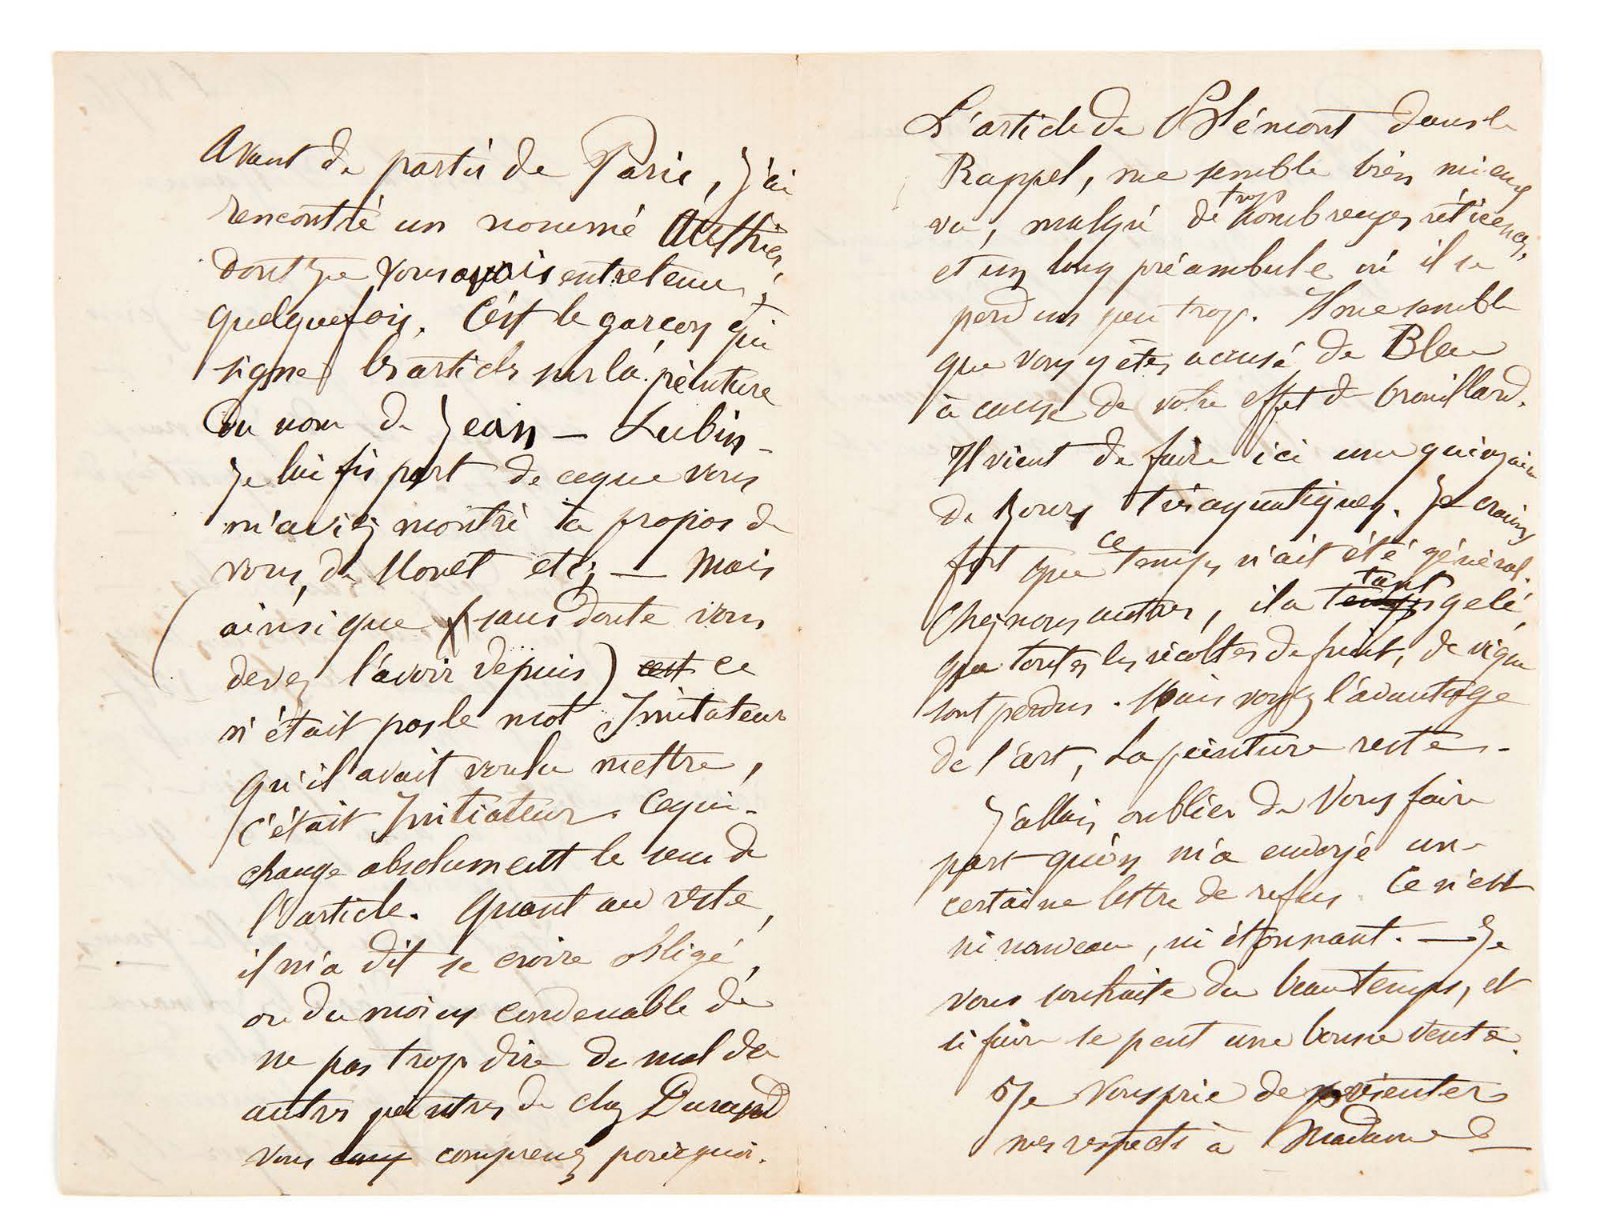 Avant de partir de Paris, j'ai
rencontré un nommé Authier,
dont je vous avais entretenu
quelquefois. C'est le garçon qui
signe les articles sur la peinture
du nom de Jean-Lubin-
Je lui fis part de ce que vous
m'aviez montré à propos de
vous, de Monet etc; — Mais
(ainsi que sans doute vous
devez l'avoir depuis) c'est ce
n'était pas le mot Imitateur
qu'il avait voulu mettre,
c'était Initiateur. Ce qui-
change absolument le sens de
l'article. Quant au reste,
il m'a dit se croire obligé,
ou du moins convenable de
ne pas trop dire de mal des
autres peintres de chez Durand
vous comprenez pourquoi.
L'article de Blémont dans le
Rappel, me semble bien mieux
vu, malgré de trop nombreuses réticences,
et un long préambule où il se
perd un peu trop. Il me semble
que vous y êtes accusé de Bleu
à cause de votre effet de brouillard.
Il vient de faire ici une quinzaine
de jours très aquatiques. Je crains
fort que ce temps n'ait été général.
Chez nous autres, il a tant gelé,
que toutes les récoltes de fruit, de vigne
sont perdus. Mais voyez l'avantage
de l'art, la peinture reste-
J'allais oublier de vous faire
part qu'on m'a envoyé une
certaine lettre de refus. Ce n'est
ni nouveau, ni étonnant. — Je
vous souhaite du beau temps, et
si faire se peut une bonne vente.
Je vous prie de présenter
mes respects à Madame